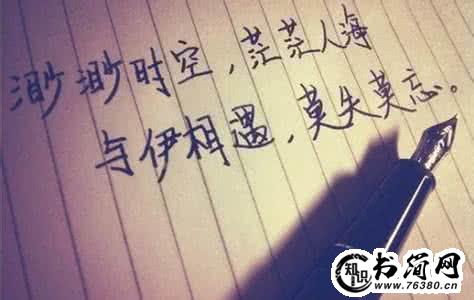 渺渺时空，茫茫人海
与伊相遇，莫失莫忘。
知识
书简网
www.76380.cn